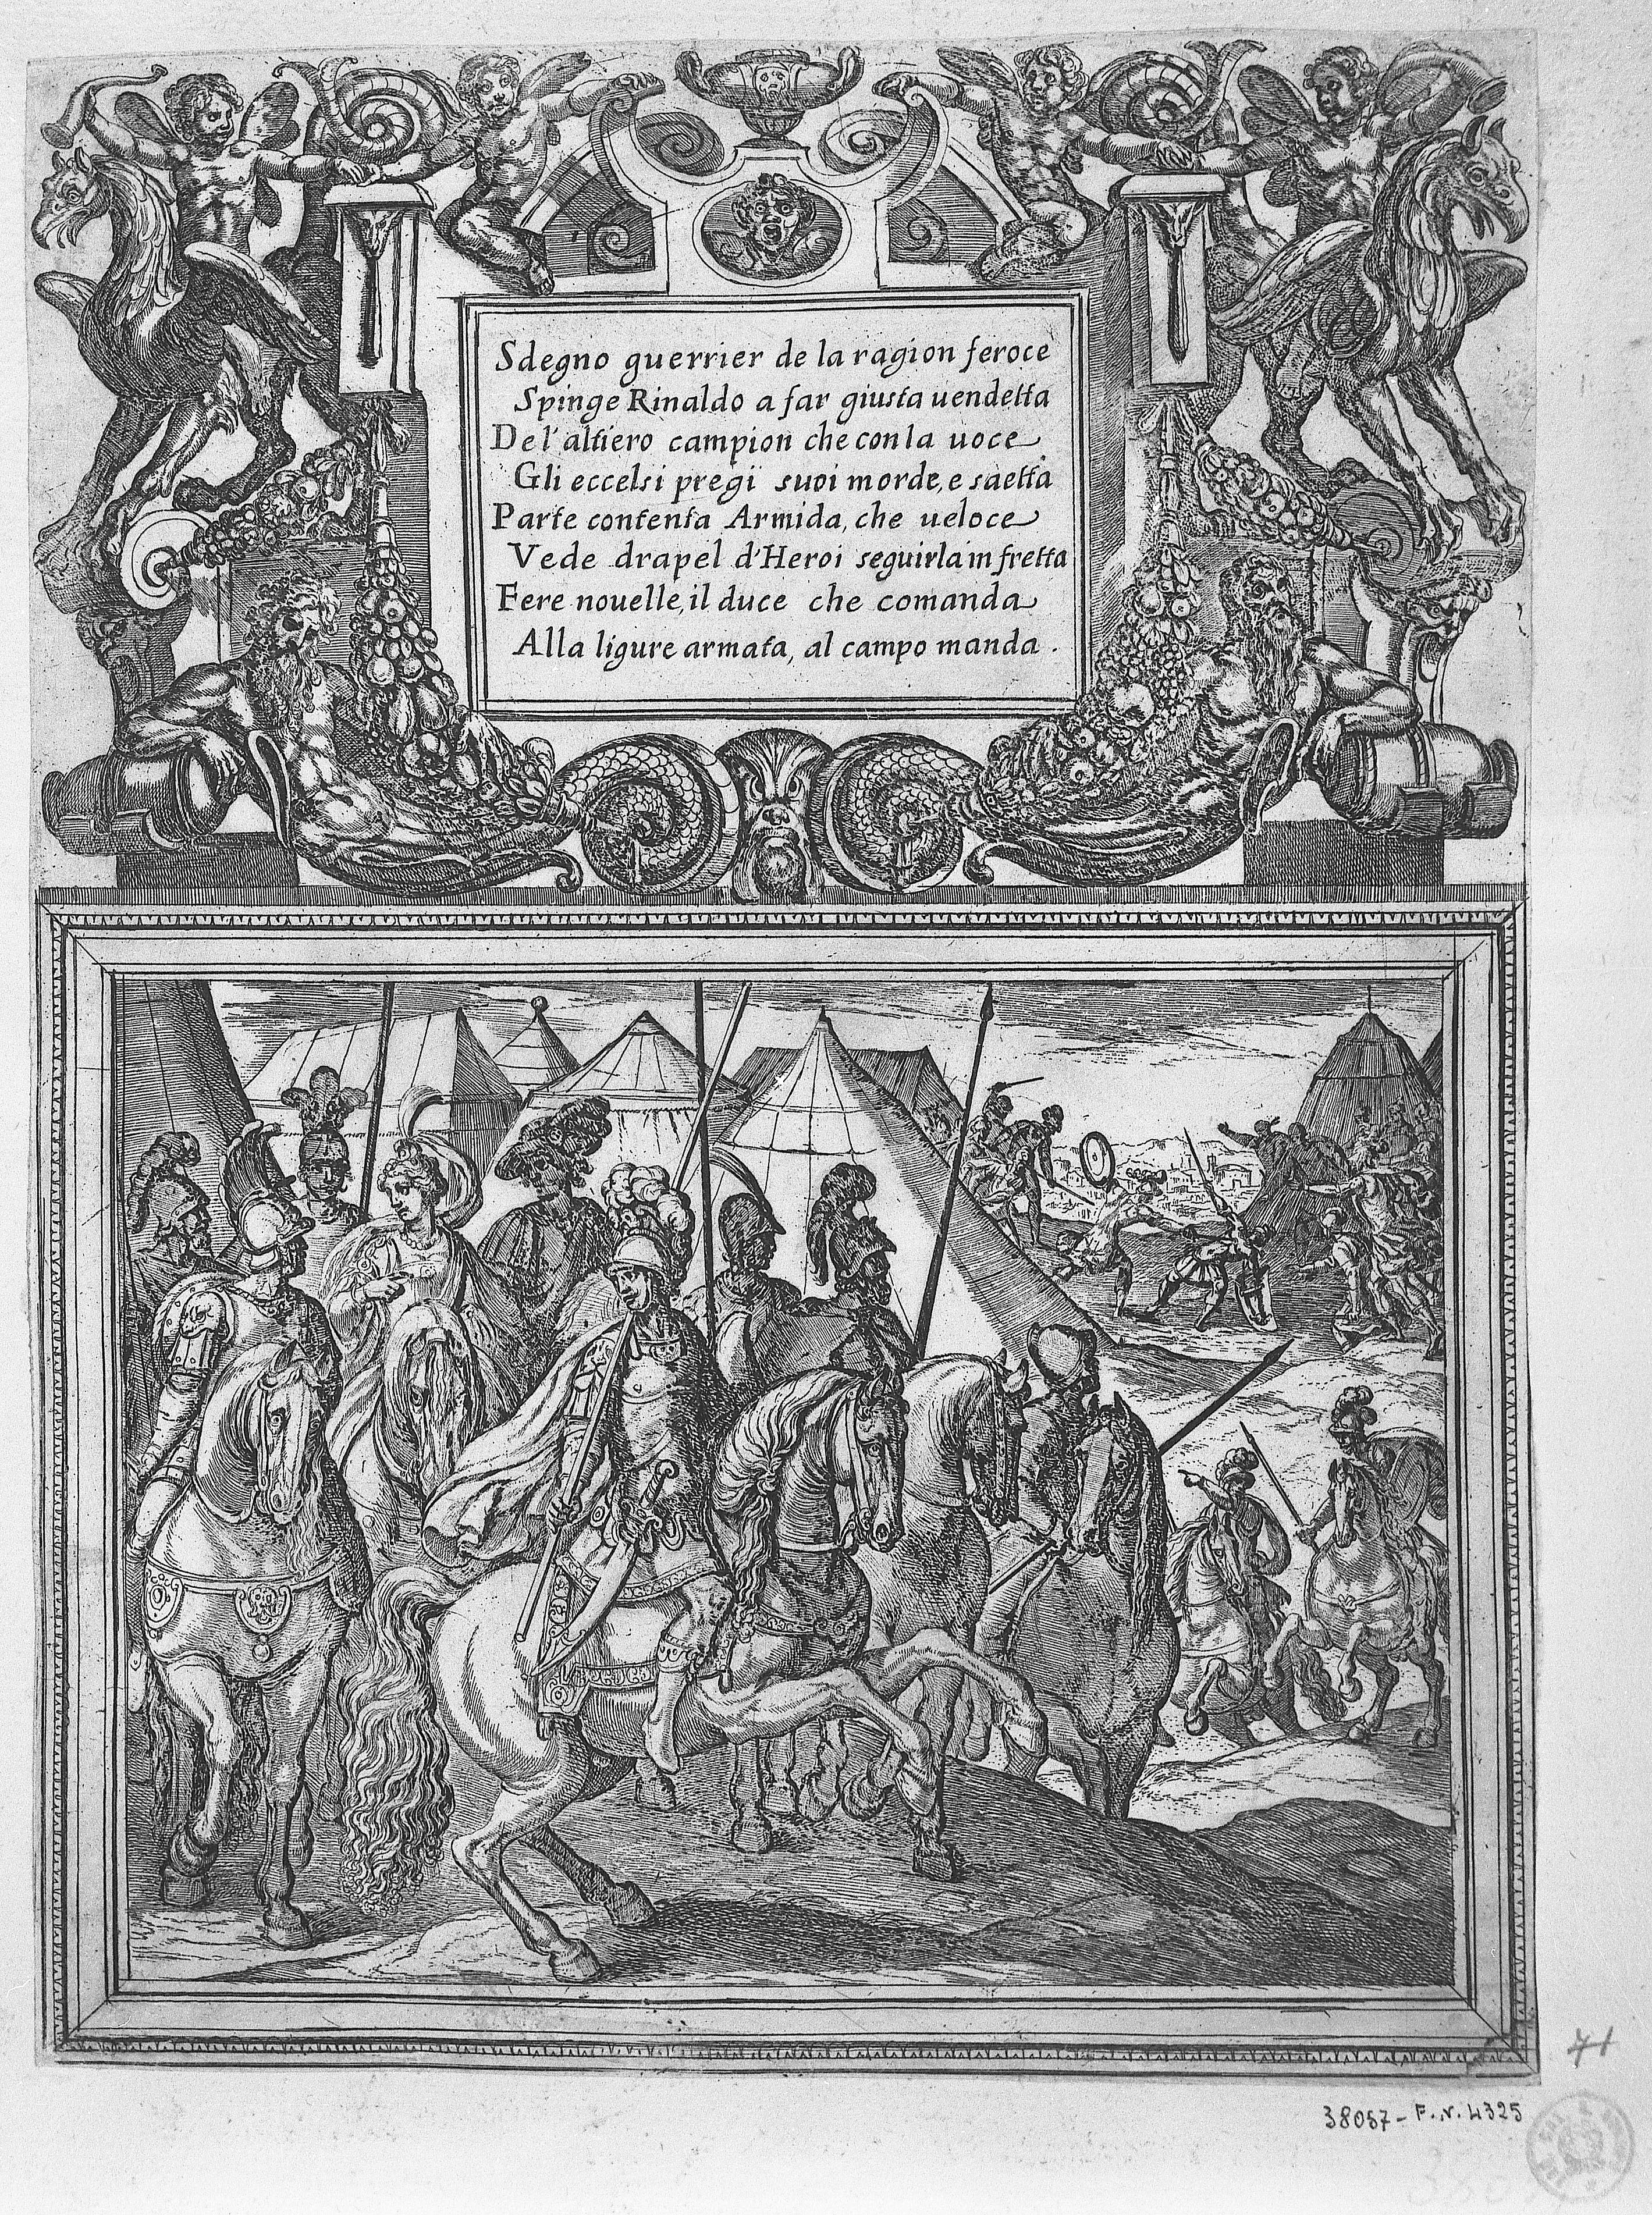 Sdegno guerrier de la ragion feroce
Spinge Rinaldo a far giusta uendetta
De l'altiero campion che con la uoce
Gli eccelsi pregi suoi morde, e saetta
Parte contenta Armida, che ueloce
Vede drapel d'Heroi seguirla in fretta
Fere nouelle, il duce che comanda
Alla ligure armata, al campo manda.
71
38057 - F. N. 4325